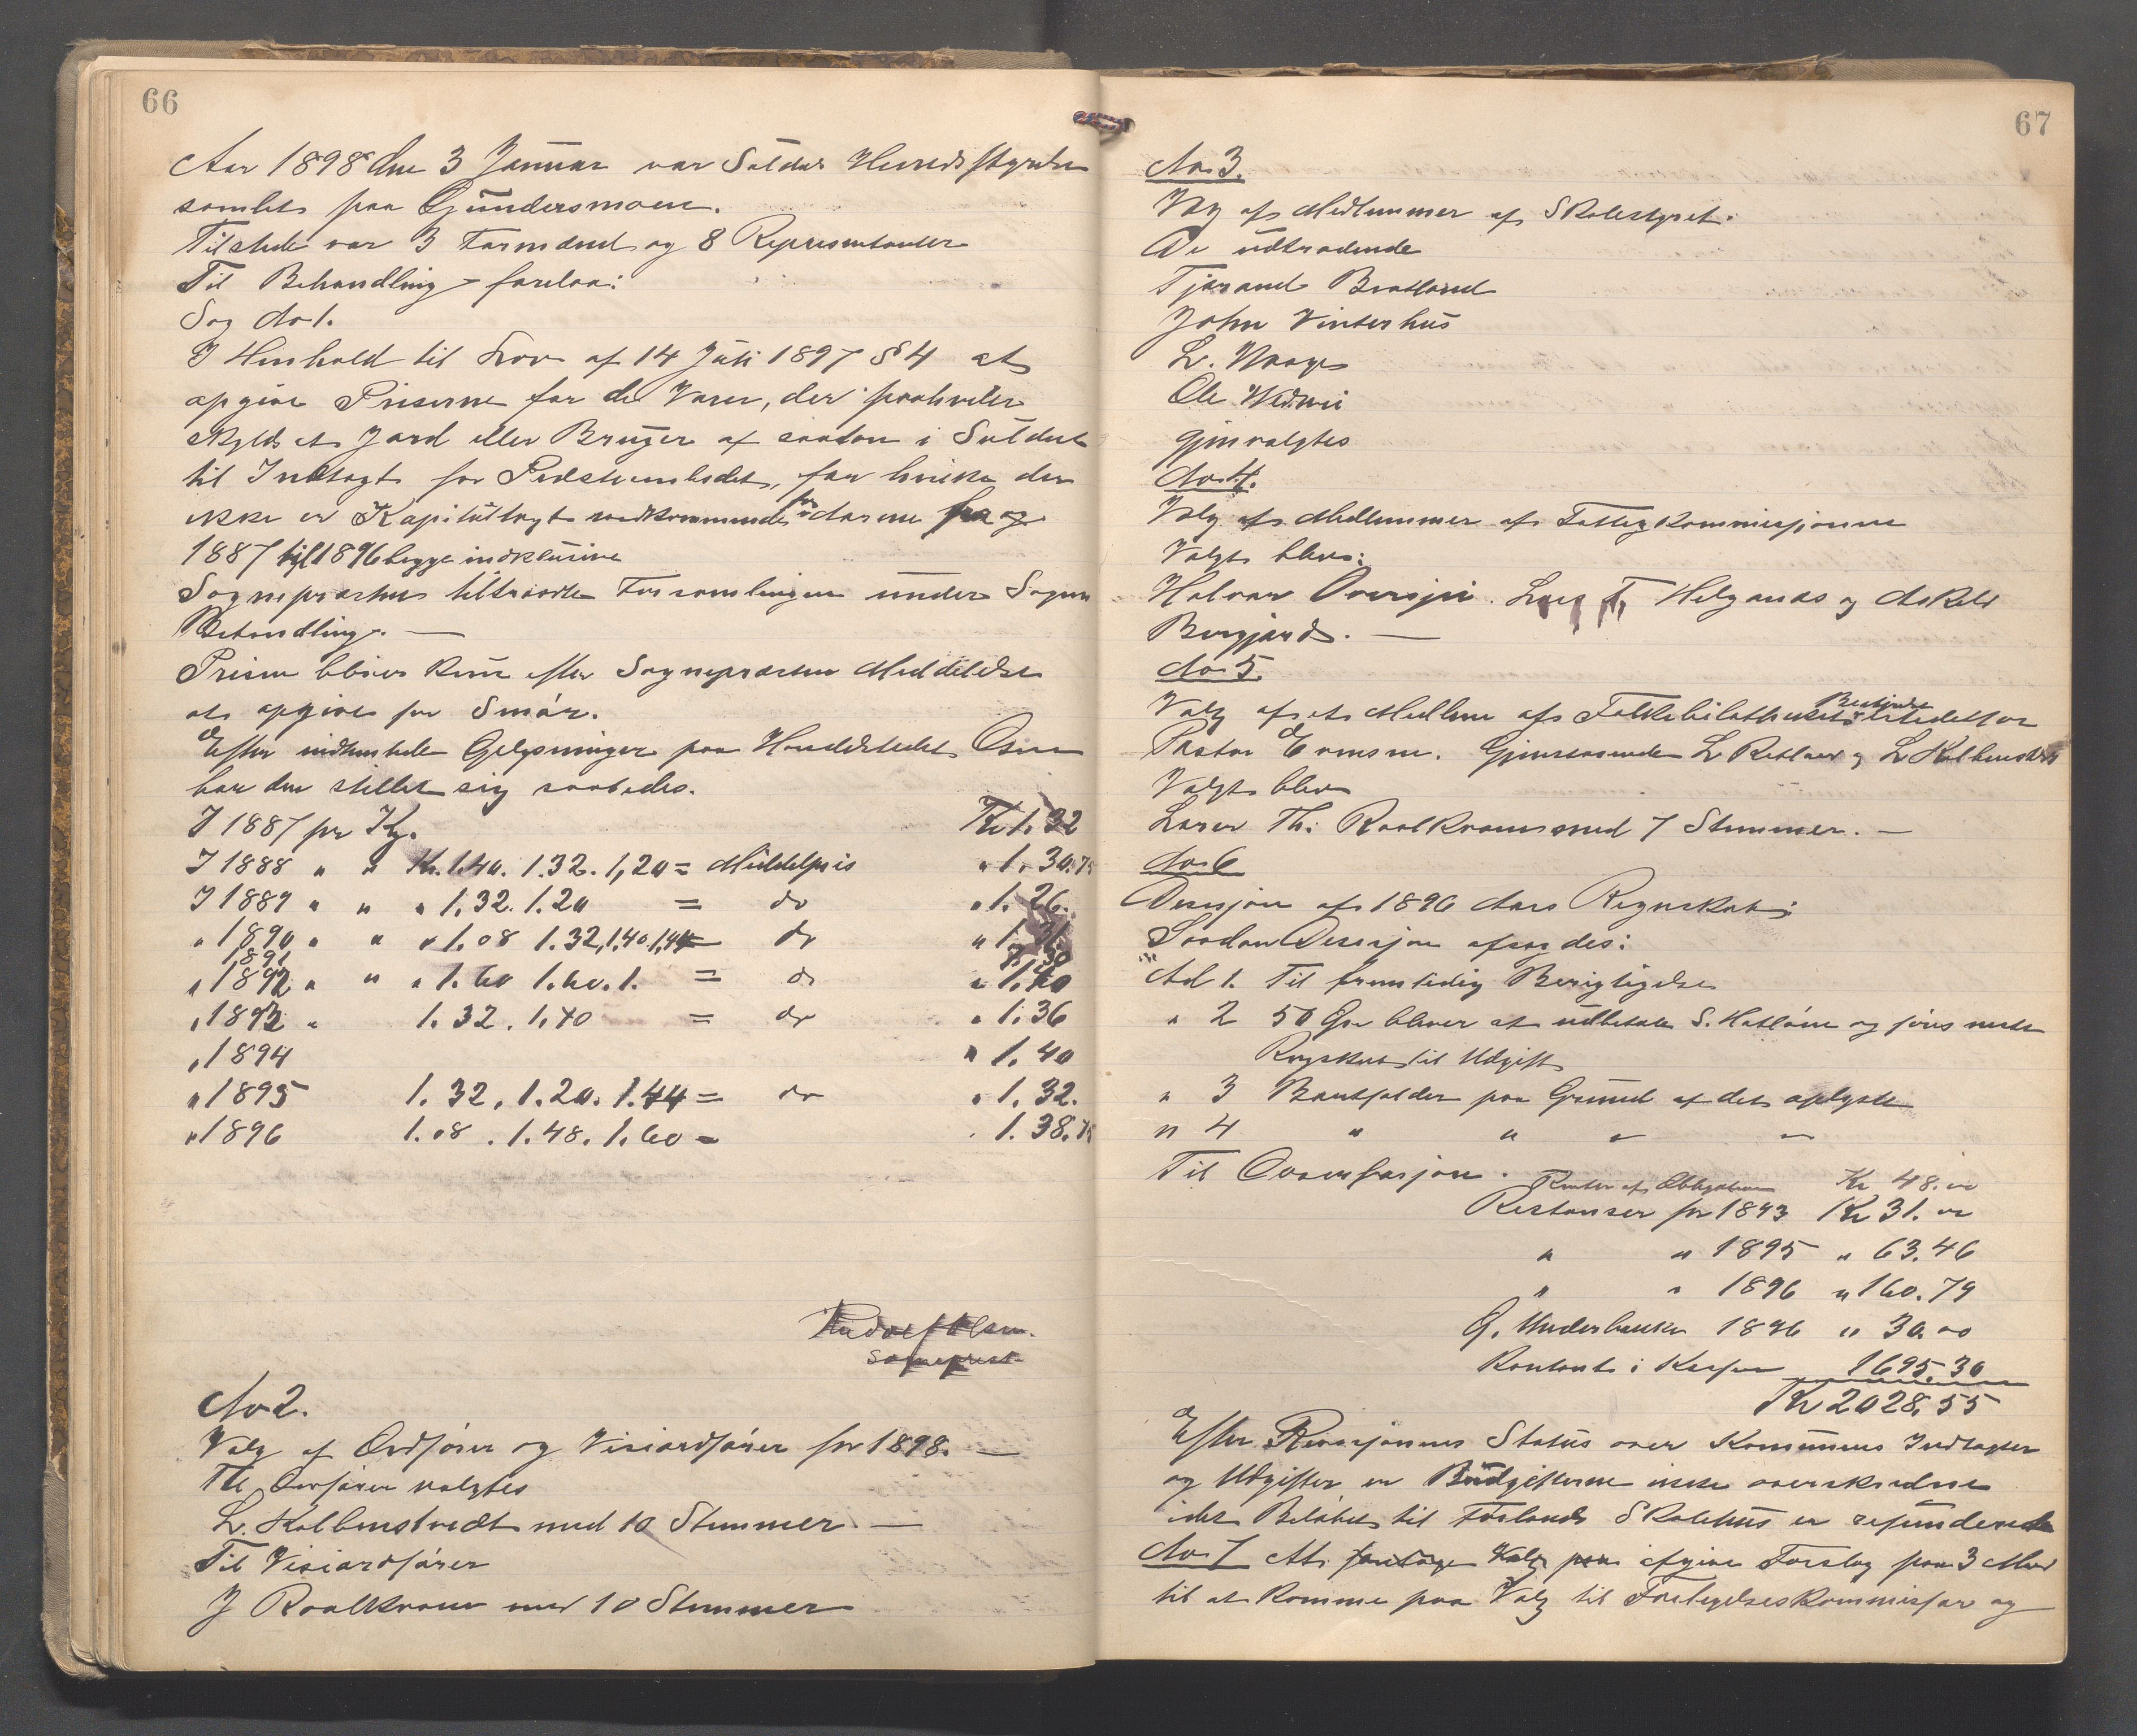 66
Aar 1898 den 3 Januar var Suldal Herredsstyrelse
samlet paa Gundersmoen.
Tilstede var 3 Formænd og 8 Repræsentanter
Til Behandling forelaa:
Sag No 1.
I Henhold til Lov af 14 Juli 1897 § 4 at
opgive Priserne for de Varer, der paahviler
skyldsat Jord eller Bruger af saadan i Suldal
til Indtægt for Presteembedet, for hvilke der
ikke er Kapitultaxt vedkommende for Aarene fra og
1887 til 1896 begge inklusive
Sognepræsten tiltraadte Forsamlingen under Sagens
Behandling. —
Prisen bliver kun efter Sognepræsten Meddelelse
at opgive for Smör.
Efter indhentede Oplysninger paa Handelsstedet Osen
har den stillet sig saaledes.
I 1887 pr Kg. Kr 1.32
I 1888 " " Kr. 1.40. 1.32. 1,20 = Middelpris " 1.30.75
I 1889 " " " 1.32. 1.20 = do " 1.26.
" 1890 " " " 1.08 1.32, 1.40. 1,44 = do " 1.31.
1891 1.30
" 1892 " " " 1.60 1.60. 1. = do " 1.40
" 1893 " 1.32. 1,40 = do " 1.36
" 1894 " 1.40
" 1895 1.32. 1.20. 1.44 = do " 1.32.
" 1896 1.08. 1.48. 1.60 = . 1.38.75
Rudolf Olsen.
Sogneprest
No 2.
Valg af Ordförer og Viseordförer for 1898. —
Til Ordförer valgtes
L. Kolbenstvedt med 10 Stemmer. —
Til Viseordförer
J Roalkvam med 10 Stemmer
67
No 3.
Valg af Medlemmer af Skolestyret.
De udtrædende
Tjerand Bratland
John Vinterhus
L. Waage
Ole
gjenvalgtes
No 4.
Valg af Medlemmer af Fattigkommisjonen
Valgt blev:
Halvor Oversjei. Lars T, Helganæs og Askild
Bergjord. —
No 5.
Valg af et Medlem af Folkebibliothekets Bestyrelse istedetfor
Pastor Evensen. Gjenstaaende L Rætland og L Kolbenstvedt
Valgt blev
Lærer Th: Roalkvam med 7 Stemmer. —
No 6
Desisjon af 1896 Aars Regnskab:
Saadan Desisjon afsagdes:
Ad 1. Til fremtidig Berigtigelse
" 2 50 Øre bliver at udbetale S. Hatlöen og föres neste
Regnskab til Udgift
" 3 Bortfalder paa Grund af det oplyste
" 4 " " " "
Til Ovenførsjon.
Renter af Obligationen Kr 48.00
Restanser for 1893 Kr 31.00
" " 1895 " 63.46
" " 1896 " 160.79
G. Underbakke 1896 " 30.00
Kontant i Kassen 1695.30
Kr 2028.55
Efter Revisjonens Status over Kommunens Indtægter
og Udgifter er Budgetterne ikke overskredne
idet Belöbet til Forlands Skolehus er refunderede
No 7 At foretage Valg paa afgive Forslag paa 3 Mænd
til at komme paa Valg til Forligelseskommissær og